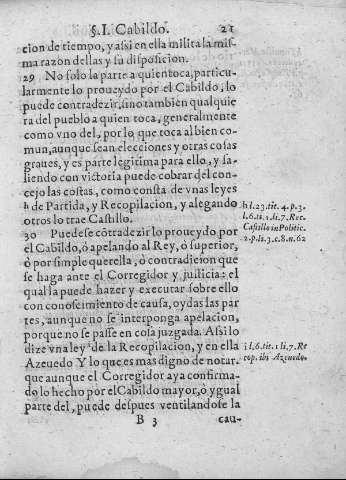 §.I. Cabildo. 21
cion de tiempo, y assi en ella milita la mis-
ma razon dellas y su disposicion.
29 No solo la parte a quien toca, particu-
larmente lo proueydo por el Cabildo, lo
puede contradezir, sino tambien qualquie
ra del pueblo a quien toca, generalmente
como vno del, por lo que toca al bien co-
mun, aunque sean elecciones y otras cosas
graues, y es parte legitima para ello, y sa-
liendo con victoria puede cobrar del con-
cejo las costas, como consta de vnas leyes
h de Partida, y Recopilacion, y alegando
otros lo trae Castillo.
h l.23.tit.4.p.3.
l.6.tit.1.li.7.Rec.
Castillo in Politic.
2.p.li.3.c.8.n.62
30 Puedese cõtradezir lo proueydo por
el Cabildo, ò apelando al Rey, ô superior,
ò por simple querella, ô contradicion que
se haga ante el Corregidor y justicia: el
qual la puede hazer y executar sobre ello
con conoscimiento de causa, oydas las par
tes, aunque no se interponga apelacion,
porque no se passe en cosa juzgada. Assi lo
dize vna ley i de la Recopilacion, y en ella
Azeuedo Y lo que es mas digno de notar.
que aunque el Corregidor aya confirma-
do lo hecho por el Cabildo mayor, ò ygual
parte del, puede despues ventilandose la
i l.6.tit.1.li.7.Re
cop. ibi Azeuedo.
B 3 cau-